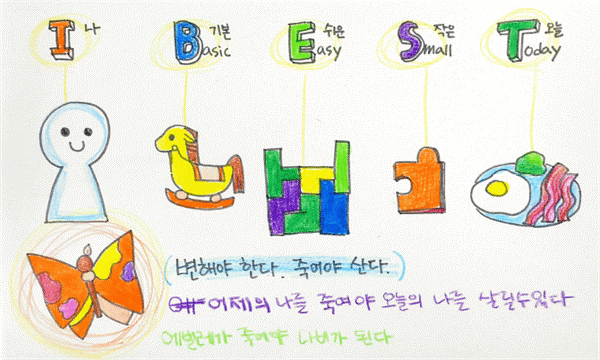 I 나 Basic 기본 Easy 쉬운 Small 작은 Today 오늘
(변해야 한다. 죽여야 산다.)
어제의 나를 죽여야 오늘의 나를 살릴수있다
에벌레가 죽어야 나비가 된다